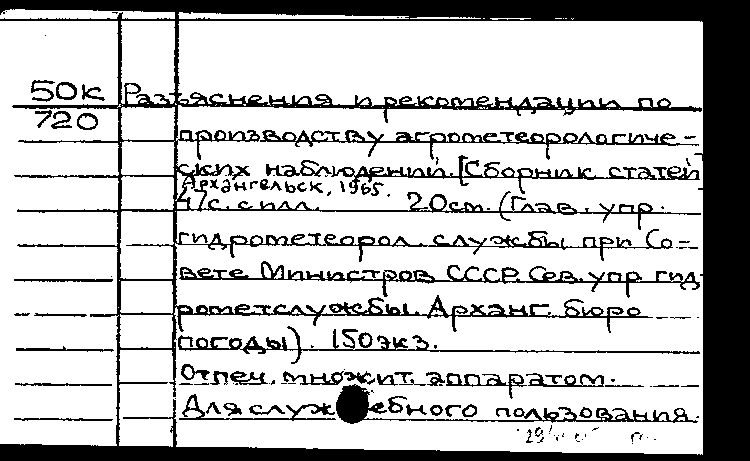 50К Разъяснения и рекомендации по
720
производству агрометеорологиче-
ских наблюдений. [Сборник статей
Архангельск, 1965.
47с. с илл. 20см. (Глав. упр.
гидрометеорол. службы при Со-
вете Министров СССР. Сев. упр. гид
рометслужбы. Арханг. бюро
погоды). 150экз.
Отпеч. множит. аппаратом.
Для служебного пользования.